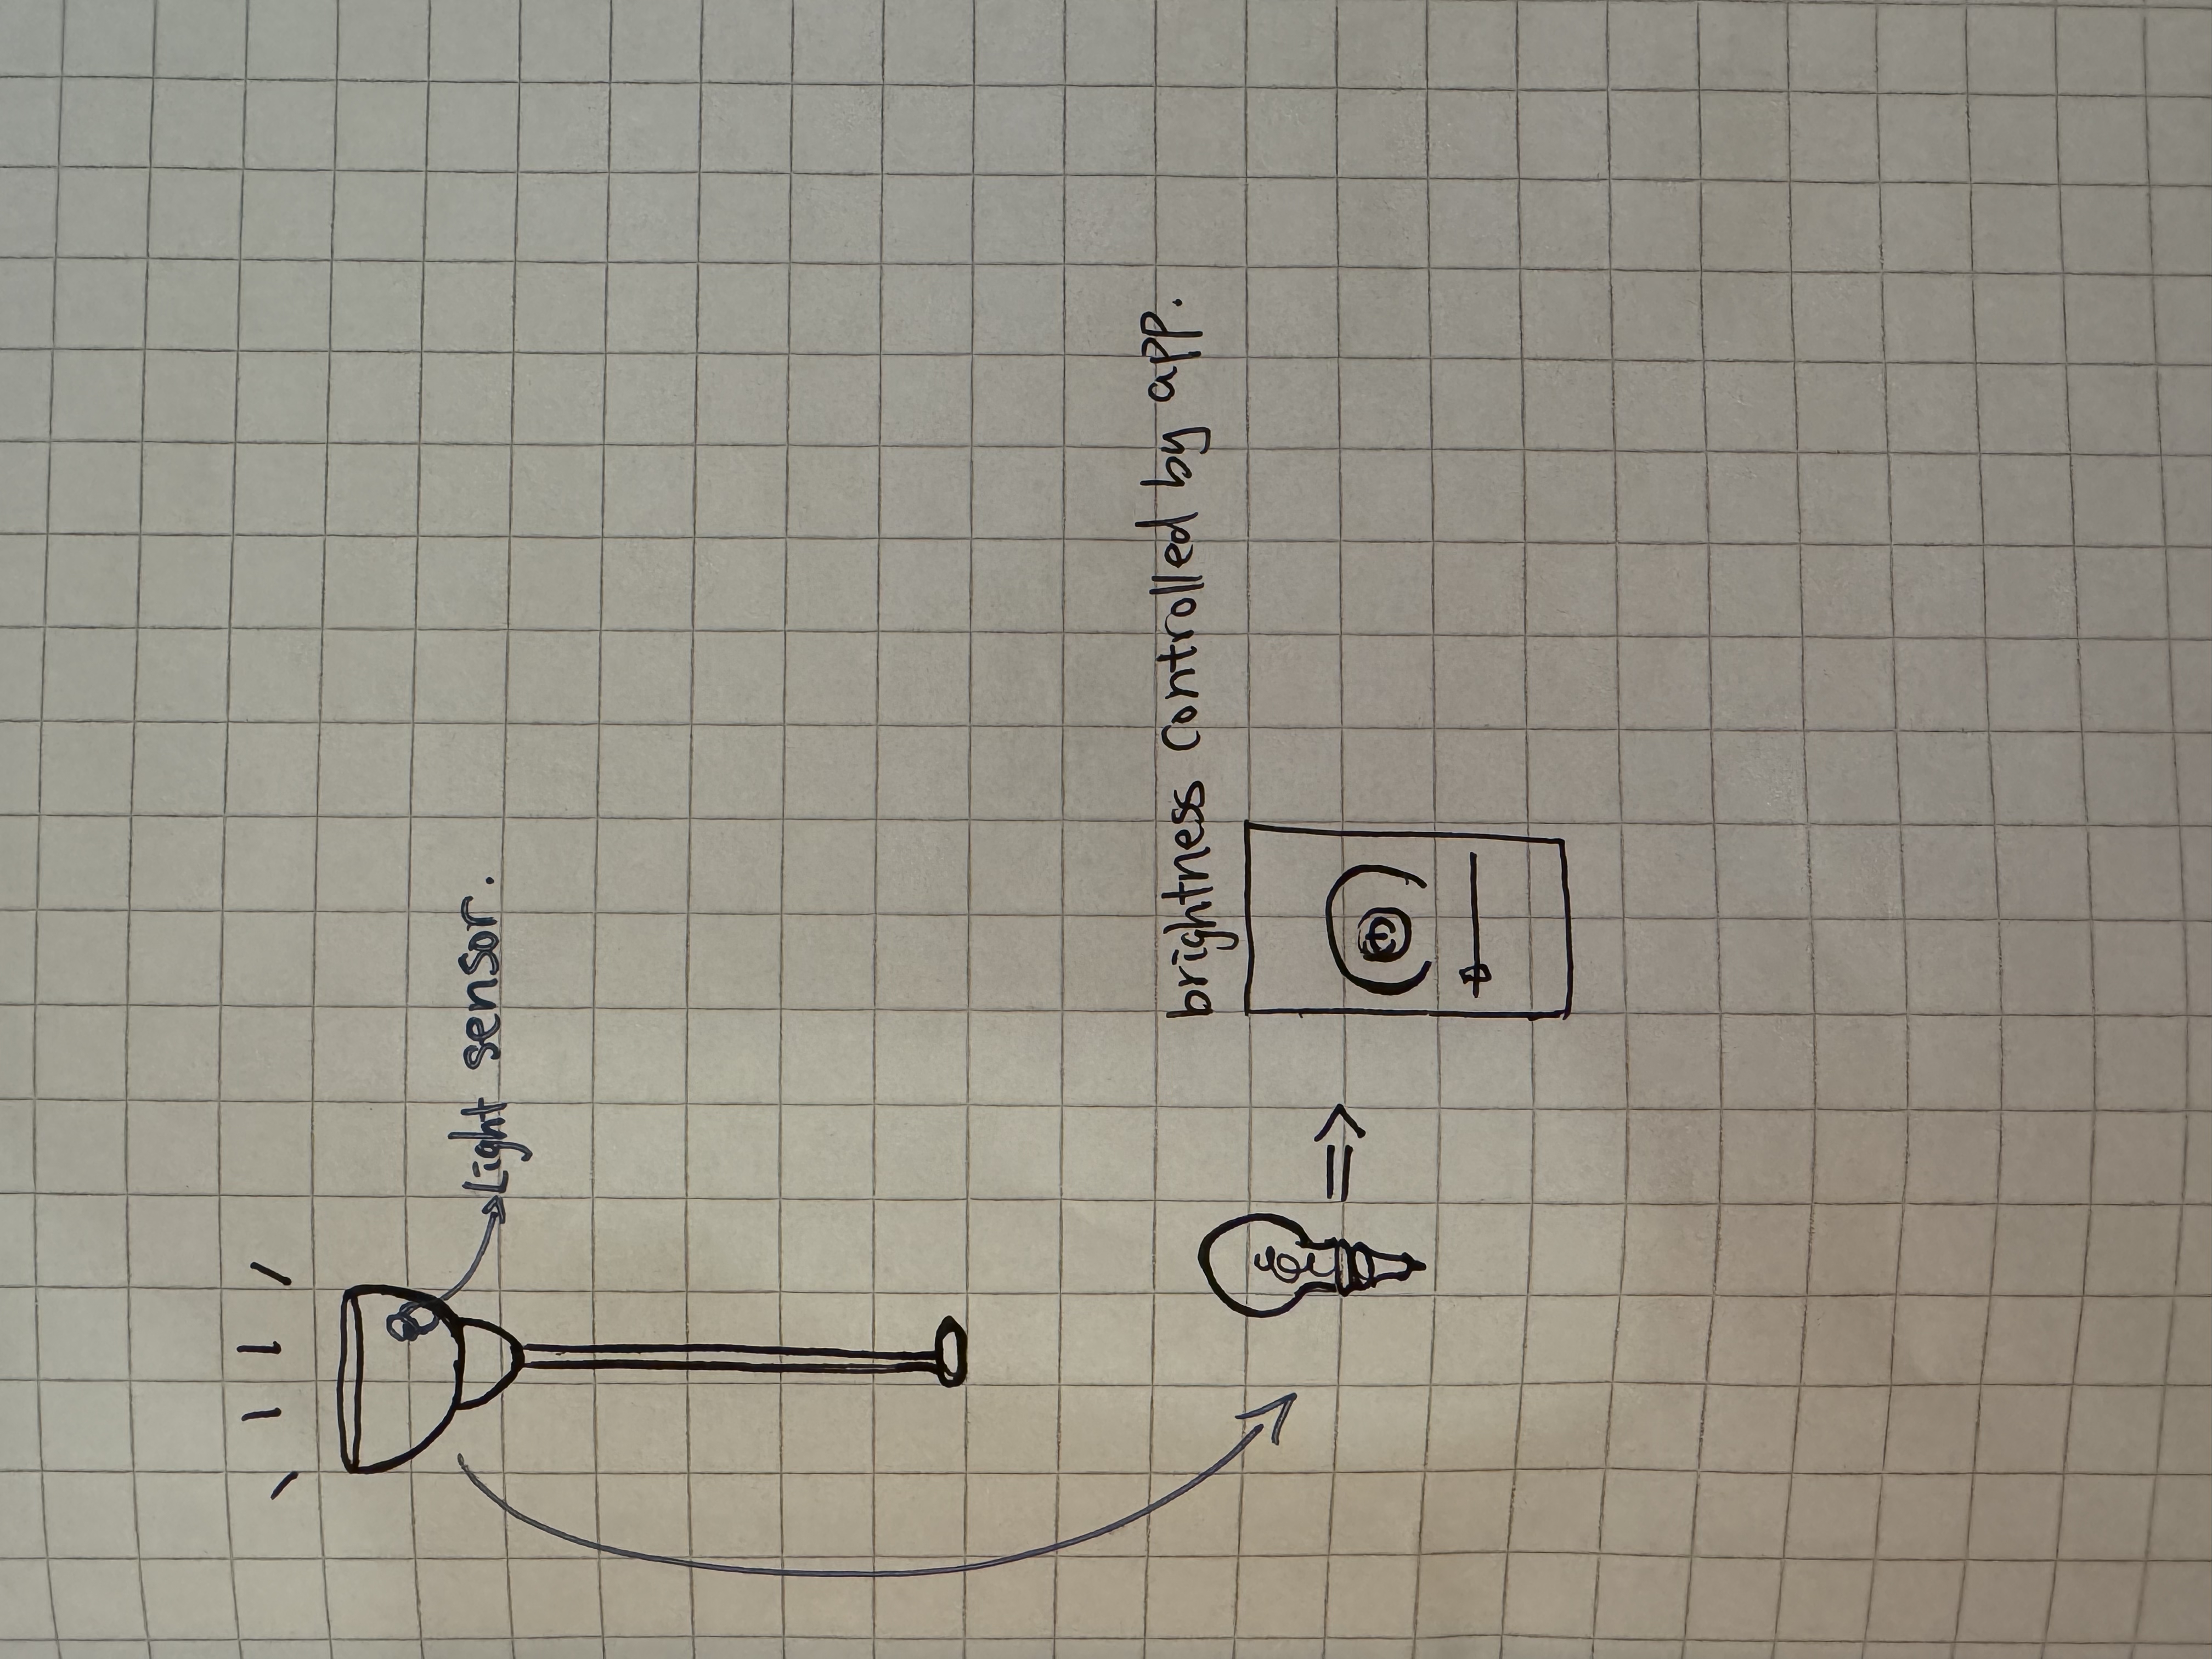 Light sensor.
brightness controlled by app.